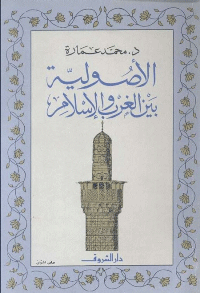 د. محمد عمارة
الأصولية
بين الغرب والإسلام
دار الشروق